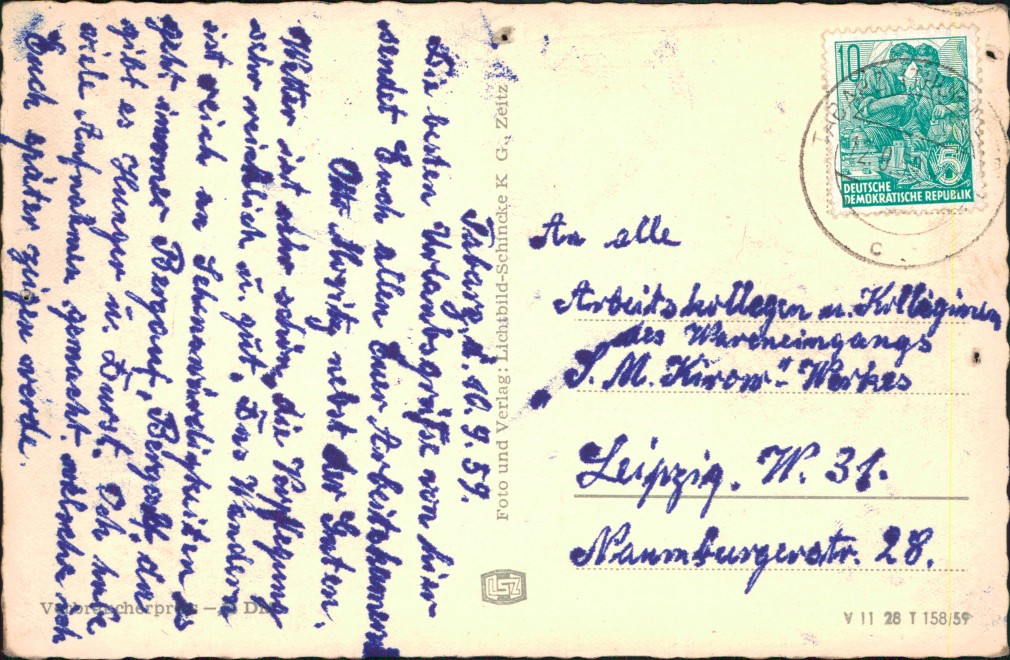 Tabarz, d. 10. 9. 59.
Die besten Urlaubsgrüße von hier
sendet Euch allen Euer Arbeitskamerad
Otto Moritz nebst der Guten.
Wetter ist sehr schön, die Verpflegung
sehr reichlich u. gut. Das Wandern
ist reich an Sehenswürdigkeiten es
geht immer Bergauf, Bergab, da
gibt es Hunger u. Durst. Ich habe
viele Aufnahmen gemacht welche ich
Euch später zeigen werde.
Verbraucherpreis – DM
Foto und Verlag: Lichtbild-Schincke K G., Zeitz
LSZ
10
5
DEUTSCHE
DEMOKRATISCHE REPUBLIK
TABARZ
12.9.
c
An alle
Arbeitskollegen u. Kolleginnen
des Wareneingangs
S. M. Kirow" Werkes
Leipzig. W. 31.
Naumburgerstr. 28.
V 11 28 T 158/59